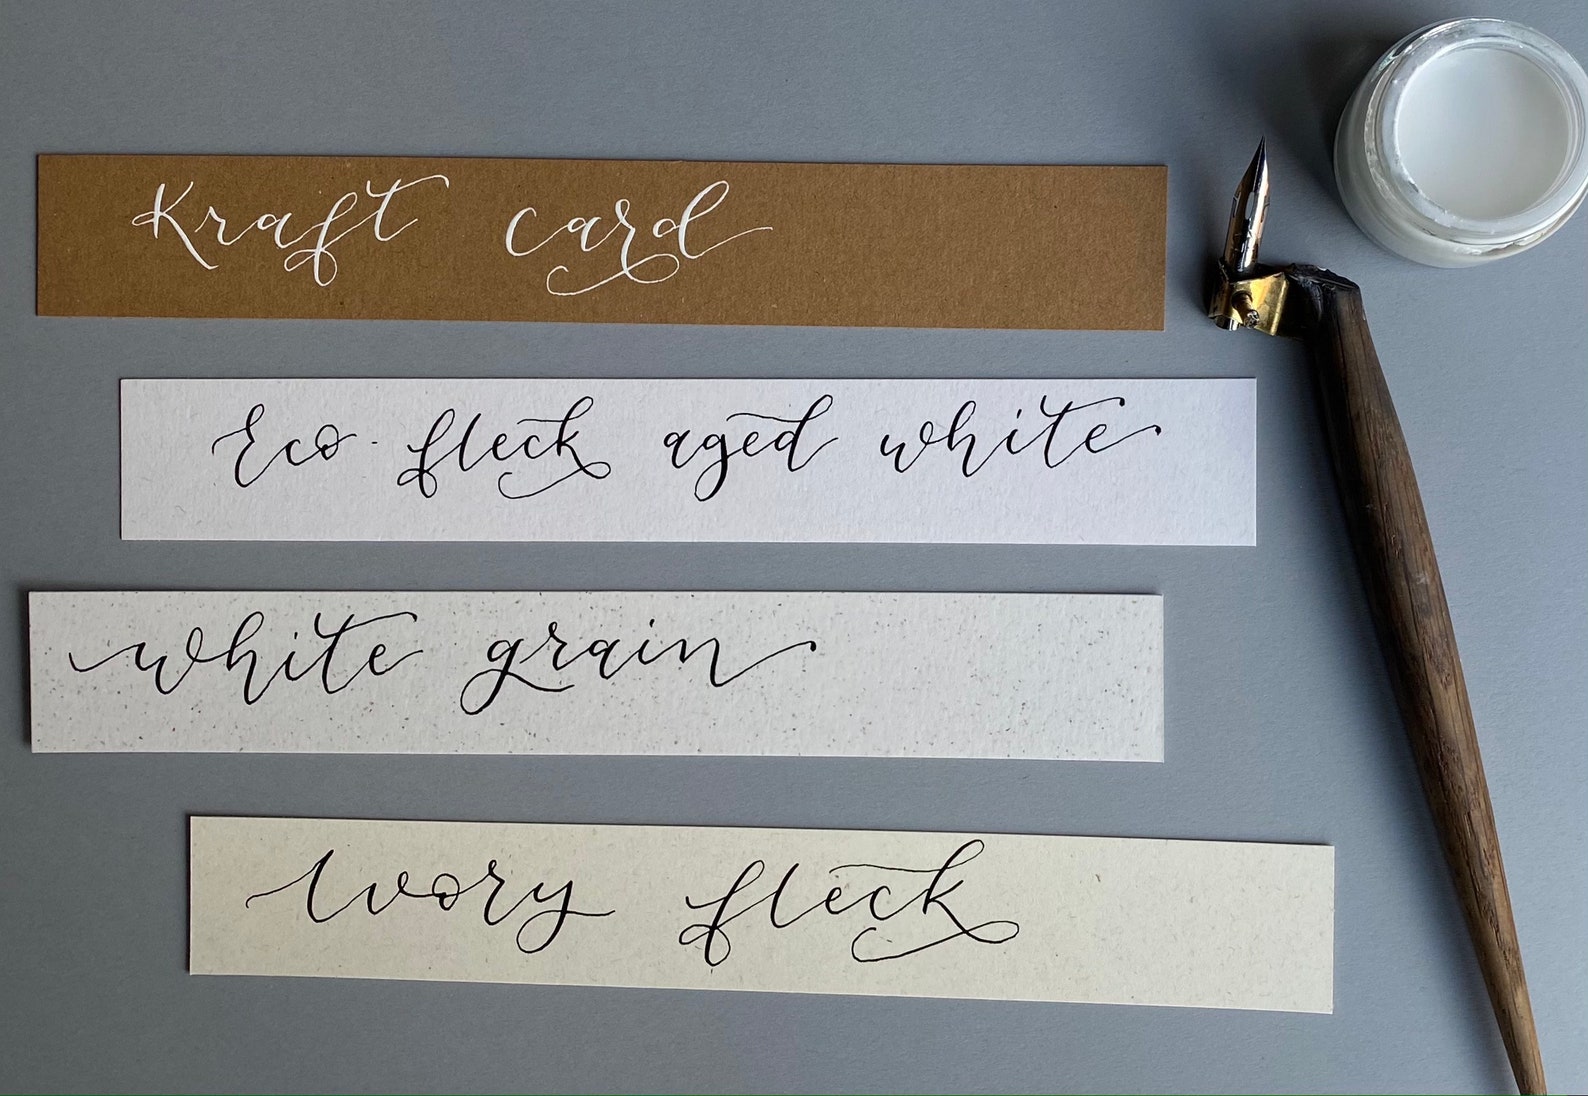 Kraft card
Eco-fleck aged white
white grain
Ivory fleck